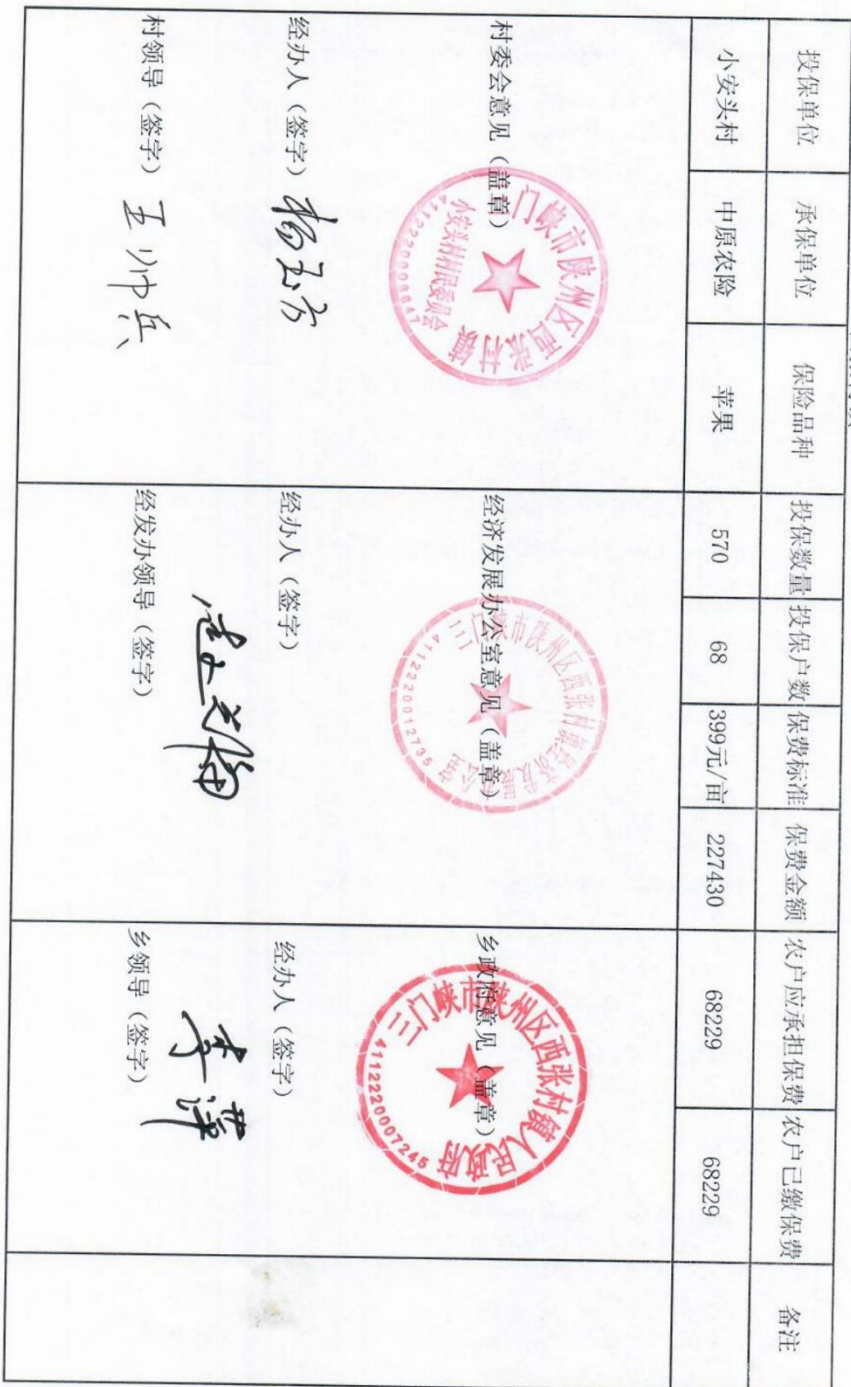 投保单位 承保单位 保险品种 投保数量 投保户数 保费标准 保费金额 农户应承担保费 农户已缴保费 备注
小安头村 中原农险 苹果 570 68 399元/亩 227430 68229 68229
村委会意见（盖章）
门峡市陕州区西张村镇
小安头村村民委员会
经办人（签字）
村领导（签字）
经济发展办公室意见（盖章）
三门峡市陕州区西张村镇经济发
公室
4112220012735
经办人（签字）
经发办领导（签字）
乡政府意见（盖章）
三门峡市陕州区西张村镇人民政府
4112220007245
经办人（签字）
乡领导（签字）